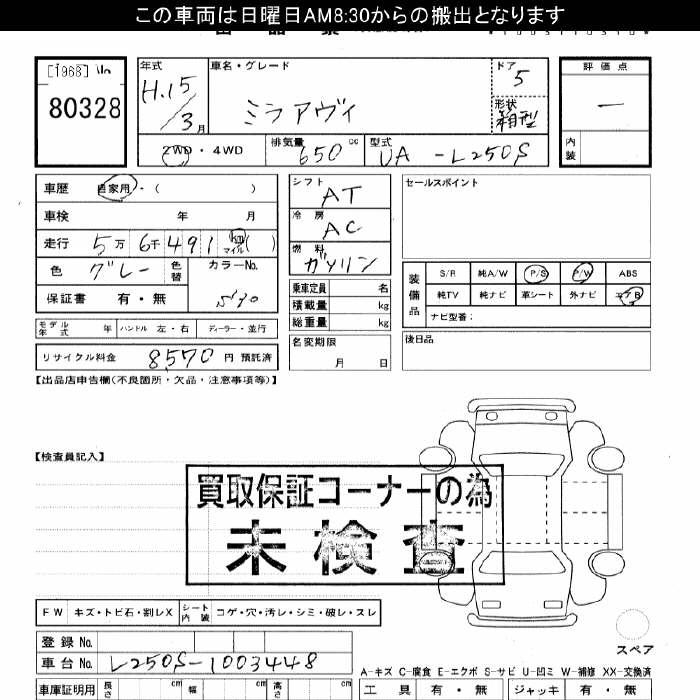 この車両は日曜日AM8:30からの搬出となります
[1968]
80328
年式
H.15
/3月
車名・グレード
ミラアヴィ
ドア
5
形状
箱型
評価点
―
内装
2WD・4WD
排気量
650 cc
型式
UA -L250S
車歴 自家用・( )
車検 年 月
走行 5万 6千 491 km マイル ( )
色 グレー 色替 カラーNo.
保証書 有・無
シフト
AT
冷房
AC
燃料
ガソリン
乗車定員 名
積載量 kg
総重量 kg
セールスポイント
装備品
S/R 純A/W P/S P/W ABS
純TV 純ナビ 革シート 外ナビ エアB
ナビ型番:
モデル年式 年 ハンドル 左・右 ディーラー・並行
名変期限
月 日
後日品
リサイクル料金 8570 円 預託済
【出品店申告欄(不良箇所・欠品・注意事項等)】
【検査員記入】
買取保証コーナーの為
未検査
FW キズ・トビ石・割レX シート内装 コゲ・穴・汚レ・シミ・破レ・スレ
スペア
登録 No.
車台 No. L250S-1003448
A-キズ C-腐食 E-エクボ S-サビ U-凹ミ W-補修 XX-交換済
車庫証明用 長さ cm 幅 cm 高さ cm
工具 有・無 ジャッキ 有・無